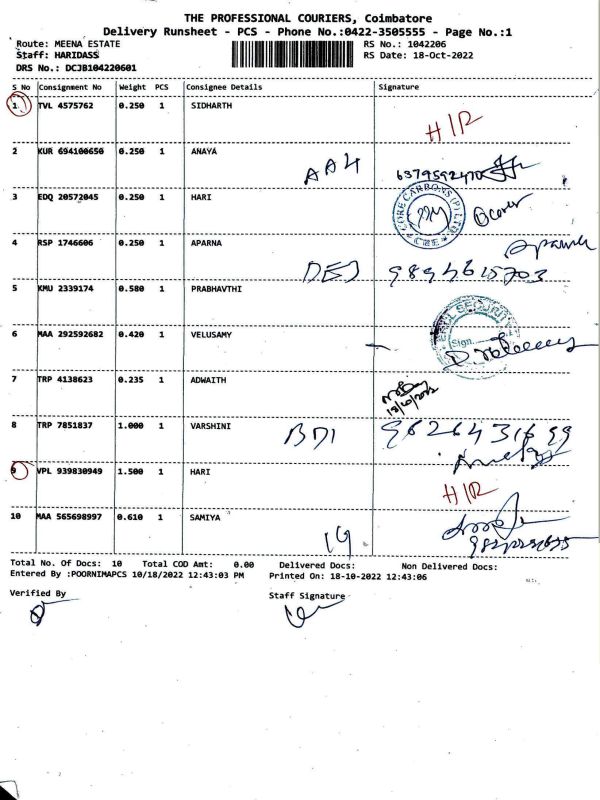 THE PROFESSIONAL COURIERS, Coimbatore
Delivery Runsheet - PCS - Phone No.:0422-3505555 - Page No.:1
Route: MEENA ESTATE RS No.: 1042206
Staff: HARIDASS RS Date: 18-Oct-2022
DRS No.: DCJB104220601
S No Consignment No Weight PCS Consignee Details Signature
1 TVL 4575762 0.250 1 SIDHARTH
H/R
2 KUR 694100650 0.250 1 ANAYA
AA4
3 EDQ 20572045 0.250 1 HARI
CORE CARBONS (P) LTD
CBE
4 RSP 1746606 0.250 1 APARNA
Aparna
DE3 9894615703
5 KMU 2339174 0.580 1 PRABHAVTHI
SECURITY
Sign.
6 MAA 292592682 0.420 1 VELUSAMY
7 TRP 4138623 0.235 1 ADWAITH
18/10/2022
8 TRP 7851837 1.000 1 VARSHINI
BD1 9626431699
9 VPL 939830949 1.500 1 HARI
H/R
10 MAA 565698997 0.610 1 SAMIYA
19
Total No. Of Docs: 10 Total COD Amt: 0.00 Delivered Docs: Non Delivered Docs:
Entered By :POORNIMAPCS 10/18/2022 12:43:03 PM Printed On: 18-10-2022 12:43:06
Verified By Staff Signature